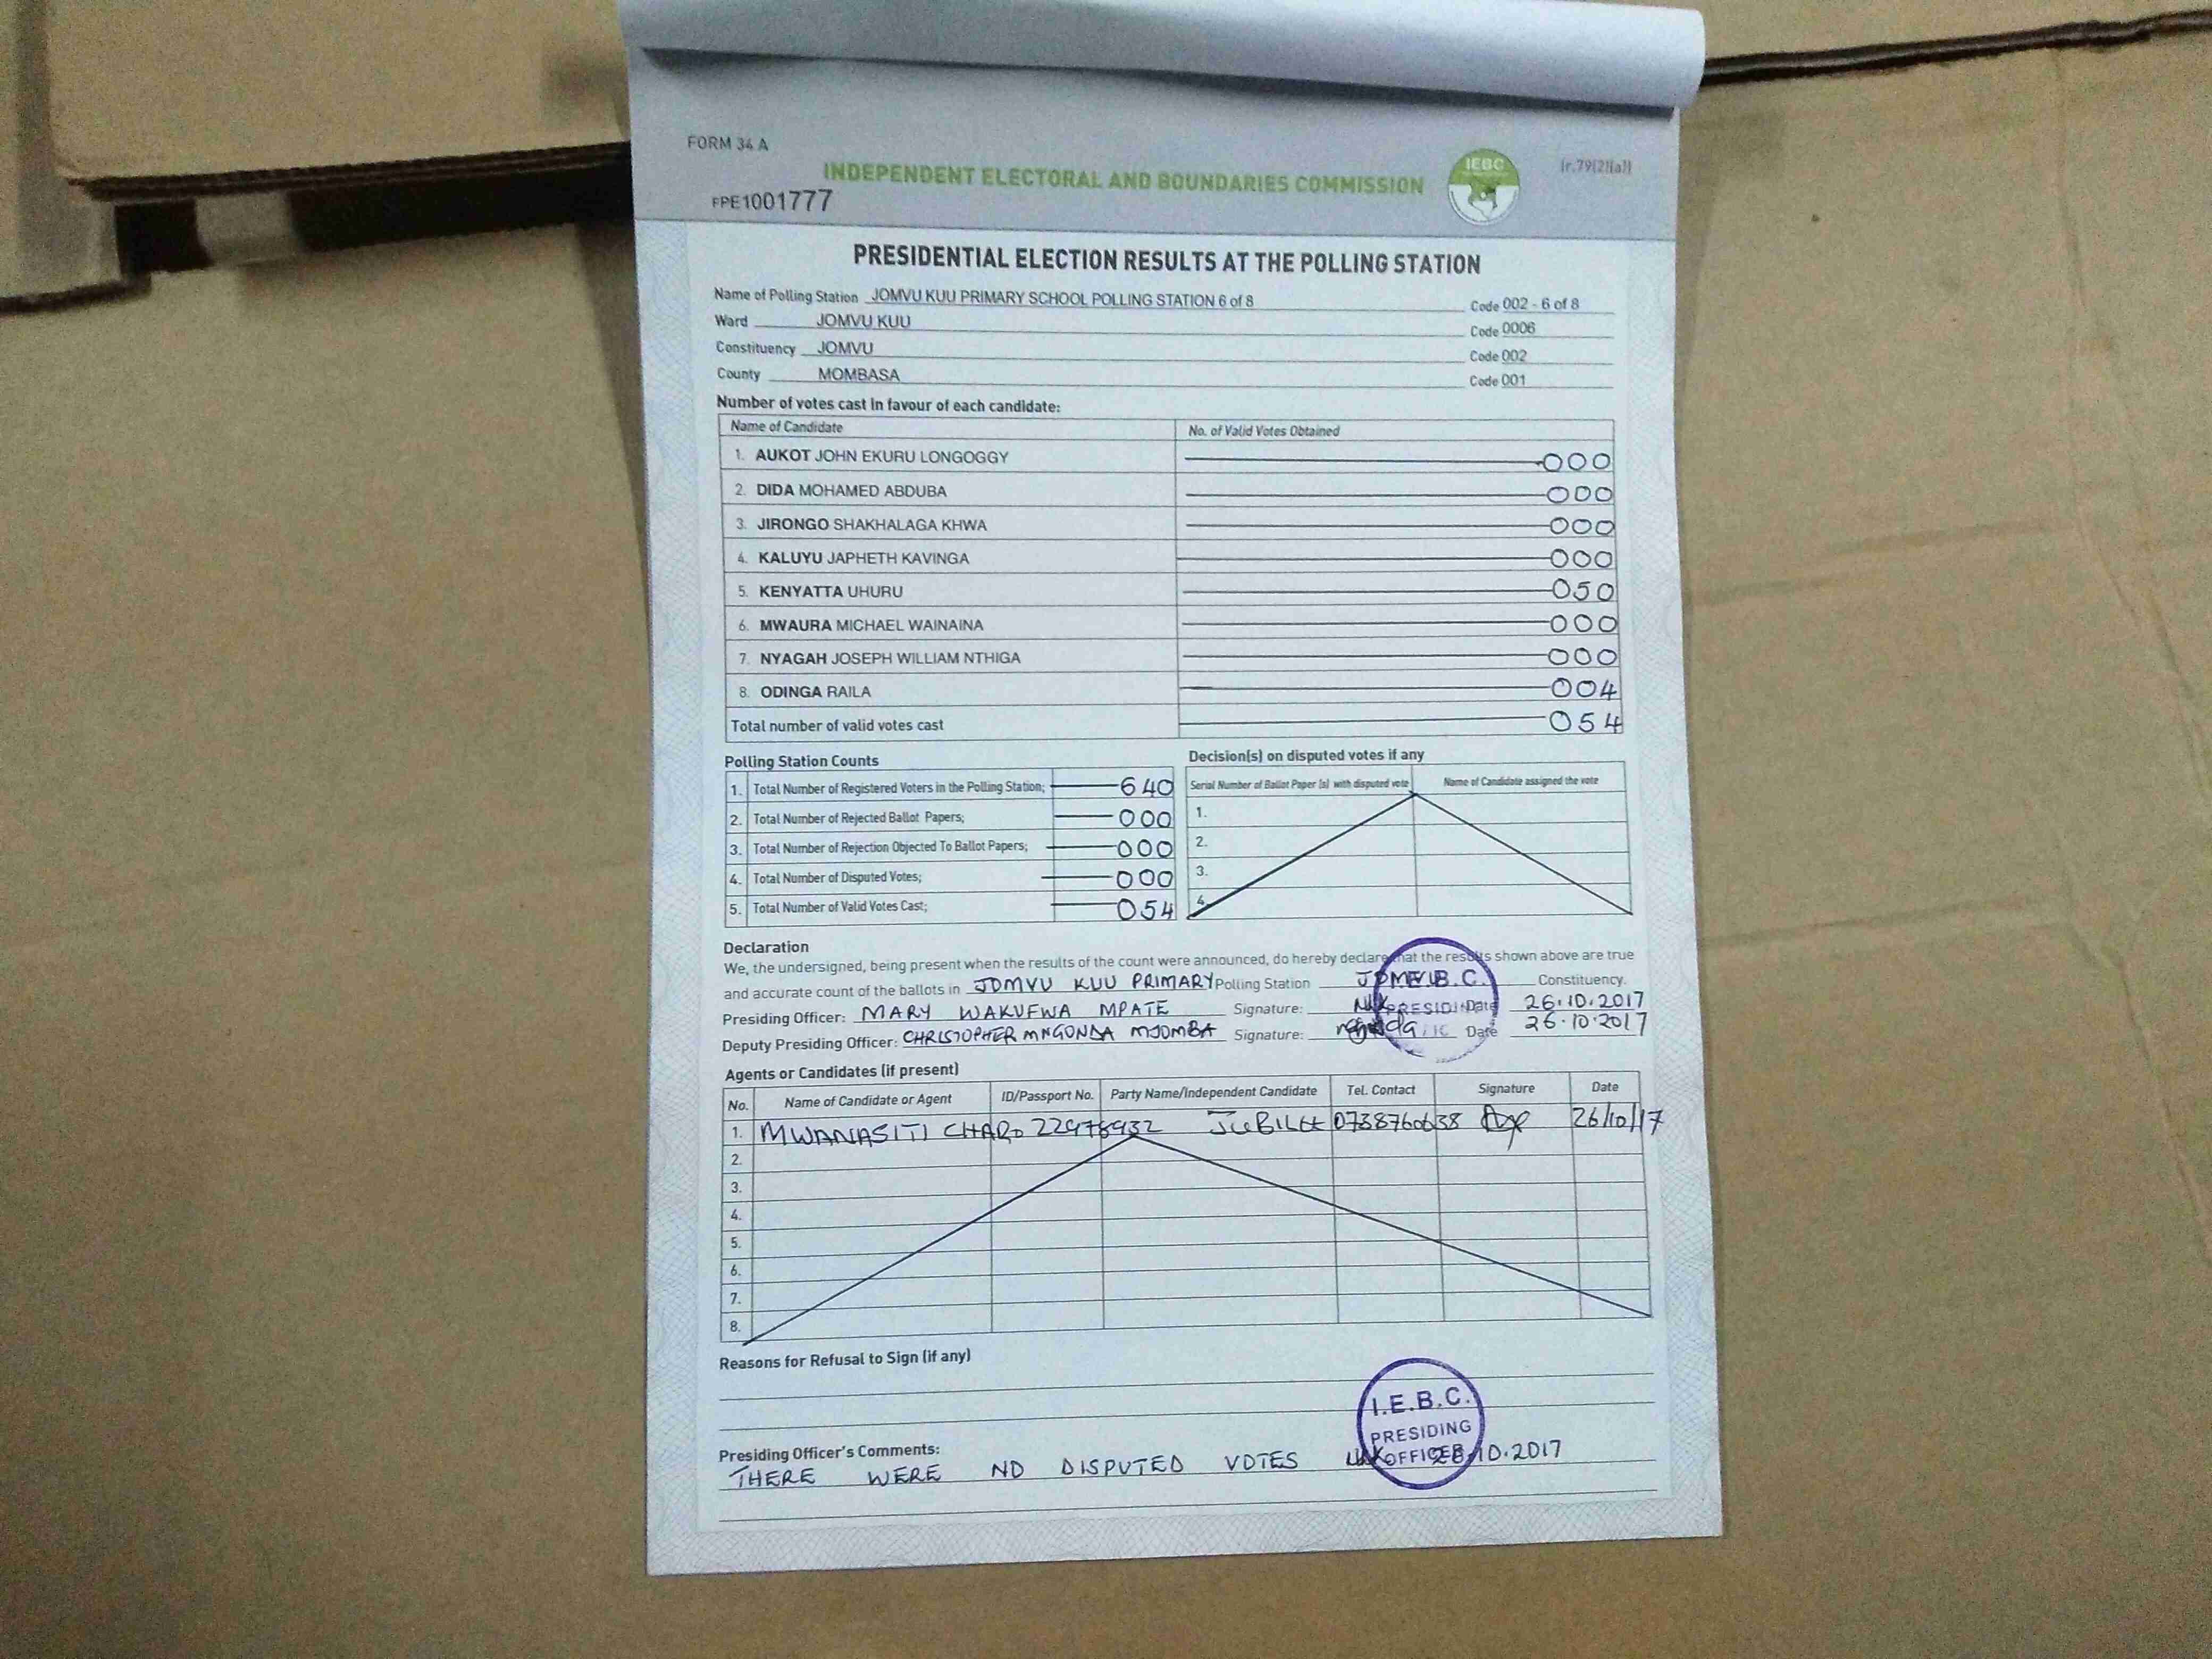 FORM 34 A
(r.79(2)(a))
INDEPENDENT ELECTORAL AND BOUNDARIES COMMISSION
IEBC
FPE1001777
PRESIDENTIAL ELECTION RESULTS AT THE POLLING STATION
Name of Polling Station JOMVU KUU PRIMARY SCHOOL POLLING STATION 6 of 8 Code 002 - 6 of 8
Ward JOMVU KUU Code 0006
Constituency JOMVU Code 002
County MOMBASA Code 001
Number of votes cast in favour of each candidate:
Name of Candidate No. of Valid Votes Obtained
1. AUKOT JOHN EKURU LONGOGGY 000
2. DIDA MOHAMED ABDUBA 000
3. JIRONGO SHAKHALAGA KHWA 000
4. KALUYU JAPHETH KAVINGA 000
5. KENYATTA UHURU 050
6. MWAURA MICHAEL WAINAINA 000
7. NYAGAH JOSEPH WILLIAM NTHIGA 000
8. ODINGA RAILA 004
Total number of valid votes cast 054
Polling Station Counts
1. Total Number of Registered Voters in the Polling Station; 640
2. Total Number of Rejected Ballot Papers; 000
3. Total Number of Rejection Objected To Ballot Papers; 000
4. Total Number of Disputed Votes; 000
5. Total Number of Valid Votes Cast; 054
Decision(s) on disputed votes if any
Serial Number of Ballot Paper (s) with disputed vote Name of Candidate assigned the vote
1.
2.
3.
4.
Declaration
We, the undersigned, being present when the results of the count were announced, do hereby declare that the results shown above are true
and accurate count of the ballots in JOMVU KUU PRIMARY Polling Station Constituency.
Presiding Officer: MARY WAKUFWA MPATE Signature: Date 26.10.2017
Deputy Presiding Officer: CHRISTOPHER MNGONDA MJOMBA Signature: Date 26.10.2017
Agents or Candidates (if present)
No. Name of Candidate or Agent ID/Passport No. Party Name/Independent Candidate Tel. Contact Signature Date
1. MWANASITI CHARO 22978932 JUBILEE 0738760638 26/10/17
2.
3.
4.
5.
6.
7.
8.
Reasons for Refusal to Sign (if any)
Presiding Officer's Comments:
THERE WERE NO DISPUTED VOTES 26.10.2017
I.E.B.C.
PRESIDING
OFFICER